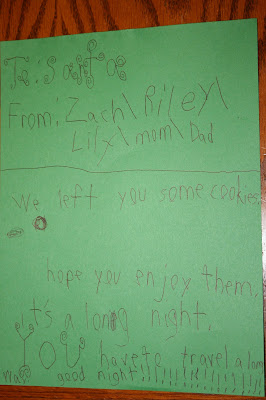 To: Santa
From: Zach\Riley\
Lily\mom\Dad
We left you some cookies.
hope you enjoy them,
It's a long night.
You have to travel a long
way good night!!!!!!!!!!!!!!!!